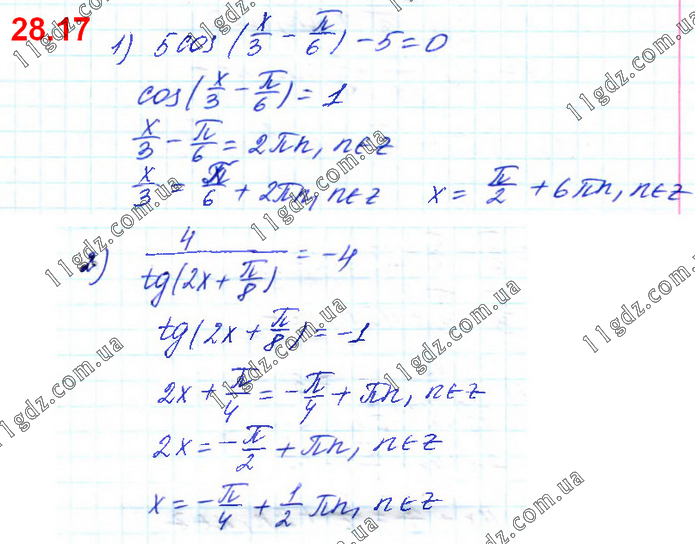 28.17
1) 5cos(x/3 - π/6) - 5 = 0
cos(x/3 - π/6) = 1
x/3 - π/6 = 2πn, n∈z
x/3 = π/6 + 2πn, n∈z x = π/2 + 6πn, n∈z
2) 4/tg(2x + π/8) = -4
tg(2x + π/8) = -1
2x + π/4 = -π/4 + πn, n∈z
2x = -π/2 + πn, n∈z
x = -π/4 + 1/2 πn, n∈z
11gdz.com.ua
11gdz.com.ua
11gdz.com.ua
11gdz.com.ua
11gdz.com.ua
11gdz.com.ua
11gdz.com.ua
11gdz.com.ua
11gdz.com.ua
11gdz.com.ua
11gdz.com.ua